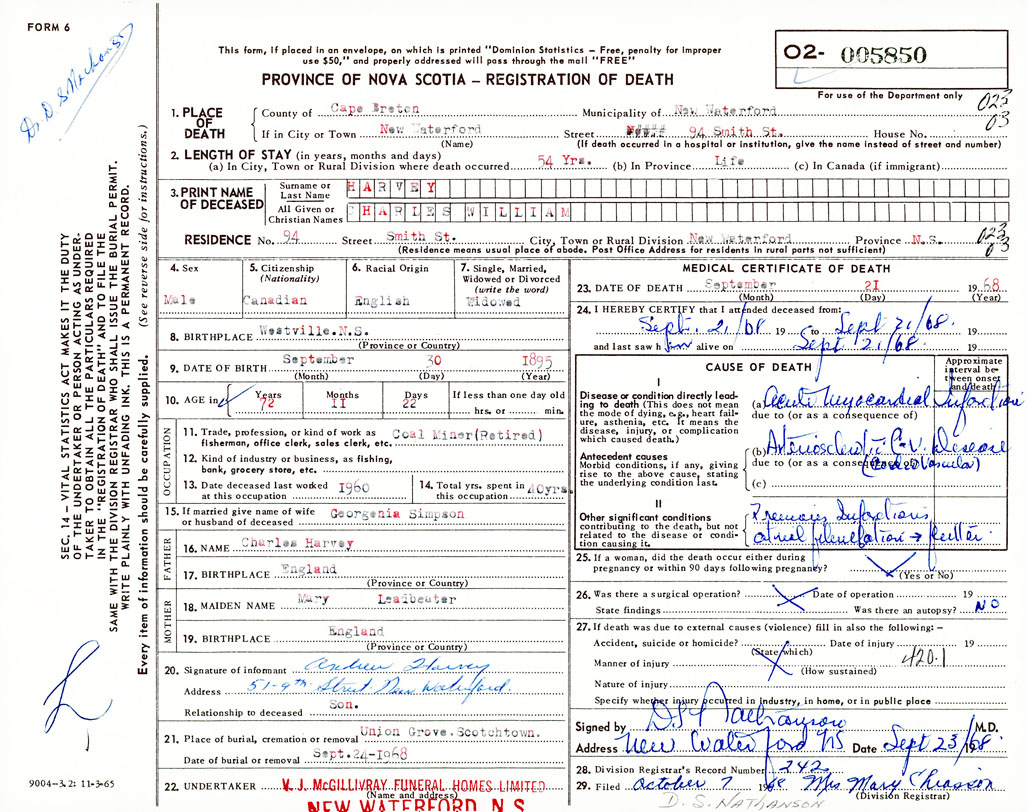 FORM 6
Dr. D. S. Nathanson
This form, if placed in an envelope, on which is printed "Dominion Statistics – Free, penalty for improper
use $50," and properly addressed will pass through the mail "FREE"
PROVINCE OF NOVA SCOTIA – REGISTRATION OF DEATH
02- 005850
For use of the Department only
023
03
1. PLACE OF DEATH
County of Cape Breton Municipality of New Waterford
If in City or Town New Waterford Street 94 Smith St. House No.
(Name) (If death occurred in a hospital or institution, give the name instead of street and number)
2. LENGTH OF STAY (in years, months and days)
(a) In City, Town or Rural Division where death occurred 54 Yrs. (b) In Province Life (c) In Canada (if immigrant)
3. PRINT NAME OF DECEASED
Surname or Last Name HARVEY
All Given or Christian Names CHARLES WILLIAM
RESIDENCE No. 94 Street Smith St. City, Town or Rural Division New Waterford Province N.S.
(Residence means usual place of abode. Post Office Address for residents in rural parts not sufficient)
023
03
4. Sex
Male
5. Citizenship (Nationality)
Canadian
6. Racial Origin
English
7. Single, Married, Widowed or Divorced (write the word)
Widowed
8. BIRTHPLACE Westville.N.S.
(Province or Country)
9. DATE OF BIRTH September 30 1895
(Month) (Day) (Year)
10. AGE in Years 72 Months 11 Days 22 If less than one day old
hrs. or min.
OCCUPATION
11. Trade, profession, or kind of work as
fisherman, office clerk, sales clerk, etc. Coal Miner(Retired)
12. Kind of industry or business, as fishing,
bank, grocery store, etc.
13. Date deceased last worked
at this occupation 1960
14. Total yrs. spent in
this occupation 40yrs.
15. If married give name of wife
or husband of deceased Georgenia Simpson
FATHER
16. NAME Charles Harvey
17. BIRTHPLACE England
(Province or Country)
MOTHER
18. MAIDEN NAME Mary Leadbeater
19. BIRTHPLACE England
(Province or Country)
20. Signature of informant Andrew Harvey
Address 51-9th Street New Waterford.
Relationship to deceased Son.
21. Place of burial, cremation or removal Union Grove.Scotchtown.
Date of burial or removal Sept.24-1968
22. UNDERTAKER V. J. McGILLIVRAY FUNERAL HOMES LIMITED
(Name and address)
NEW WATERFORD, N.S.
MEDICAL CERTIFICATE OF DEATH
23. DATE OF DEATH September 21 1968
(Month) (Day) (Year)
24. I HEREBY CERTIFY that I attended deceased from:
Sept. 21/68 19 to Sept 21/68. 19
and last saw him alive on Sept 21/68. 19
CAUSE OF DEATH
Approximate interval between onset and death
I
Disease or condition directly leading to death (This does not mean
the mode of dying, e.g., heart failure, asthenia, etc. It means the
disease, injury, or complication
which caused death.)
(a) Acute Myocardial Infarction
due to (or as a consequence of)
Antecedent causes
Morbid conditions, if any, giving
rise to the above cause, stating
the underlying condition last.
(b) Arteriosclerotic C-V. Disease
due to (or as a consequence of)
(Cardio Vascular)
(c)
II
Other significant conditions
contributing to the death, but not
related to the disease or condition causing it.
Previous Infarctions
atrial fibrillation → flutter
25. If a woman, did the death occur either during
pregnancy or within 90 days following pregnancy?
(Yes or No)
26. Was there a surgical operation? Date of operation 19
State findings Was there an autopsy? NO
27. If death was due to external causes (violence) fill in also the following: –
Accident, suicide or homicide? Date of injury 19
(State which)
Manner of injury 420.1
(How sustained)
Nature of injury
Specify whether injury occurred in Industry, in home, or in public place
Signed by D. S. Nathanson M.D.
Address New Waterford NS Date Sept 23/68. 19
28. Division Registrar's Record Number 242
29. Filed October 7 1968 Mrs Mary Chiasson
(Division Registrar)
D. S. NATHANSON
SEC. 14 – VITAL STATISTICS ACT MAKES IT THE DUTY
OF THE UNDERTAKER OR PERSON ACTING AS UNDER-
TAKER TO OBTAIN ALL THE PARTICULARS REQUIRED
IN THE "REGISTRATION OF DEATH" AND TO FILE THE
SAME WITH THE DIVISION REGISTRAR WHO SHALL ISSUE THE BURIAL PERMIT.
WRITE PLAINLY WITH UNFADING INK. THIS IS A PERMANENT RECORD.
Every item of information should be carefully supplied. (See reverse side for instructions.)
9004-3.2: 11-3-65